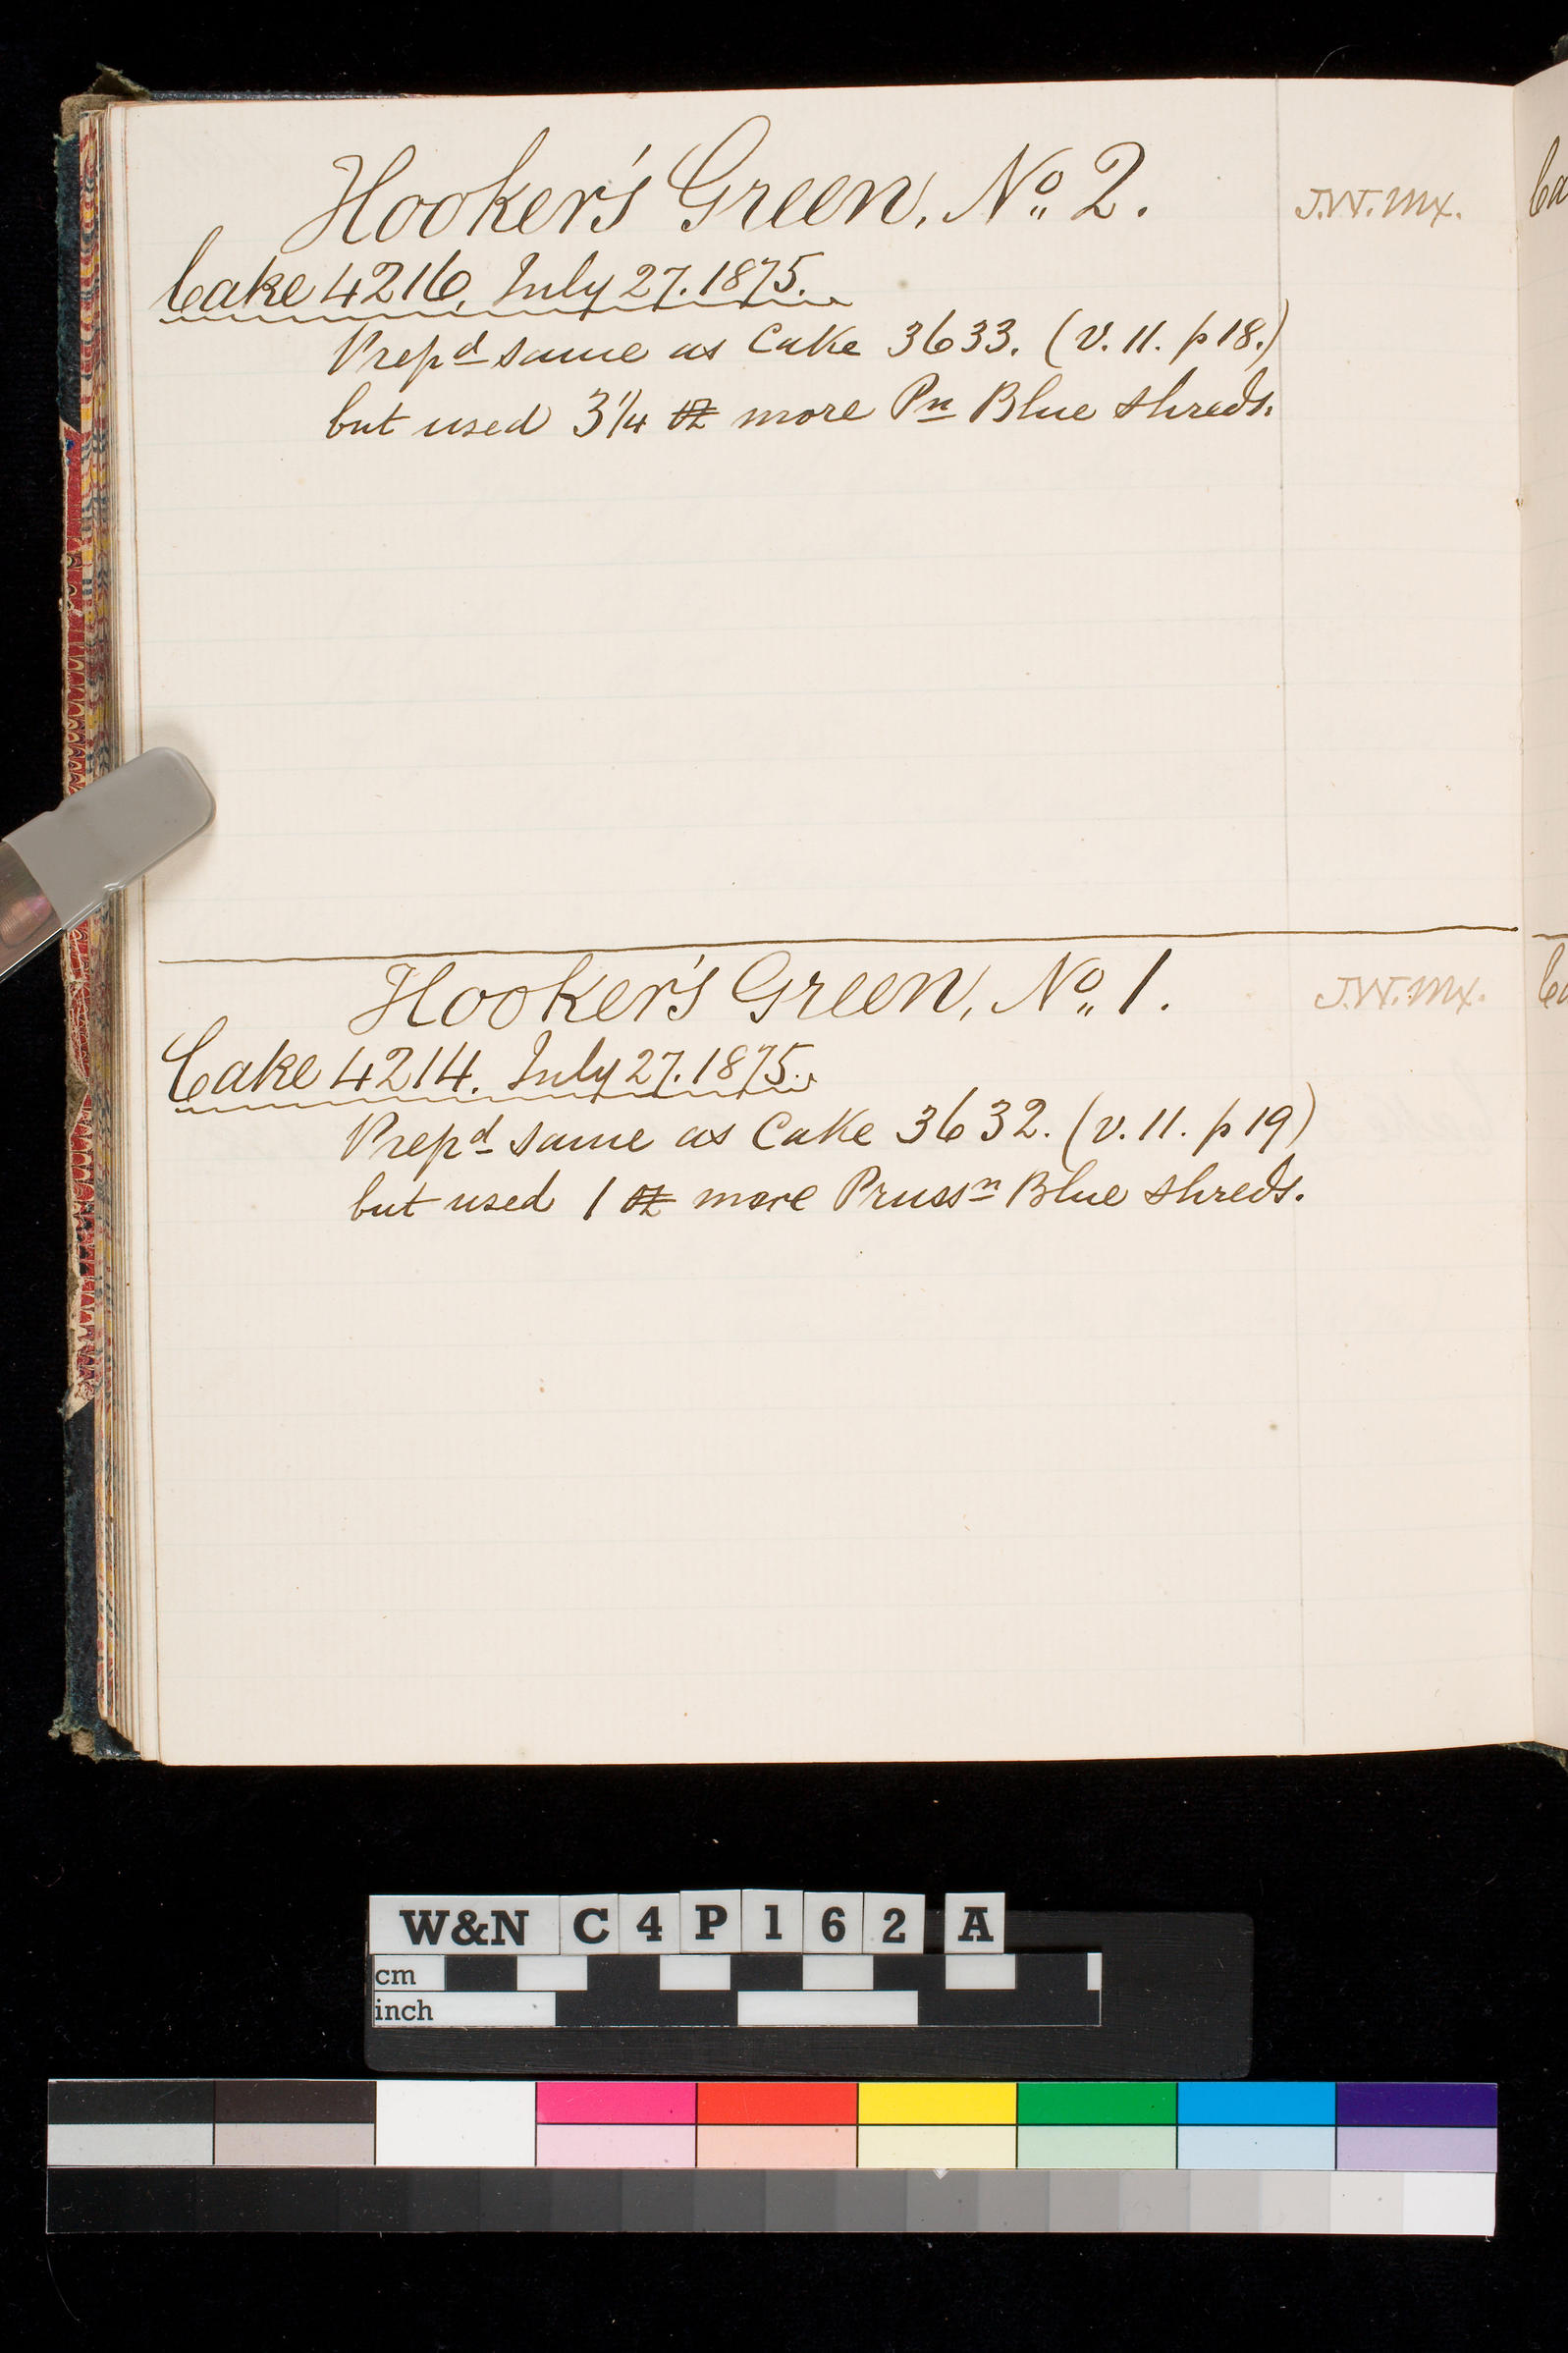 Hooker's Green, No. 2.
J.W. Mx.
Cake 4216, July 27. 1875.
Prepd same as Cake 3633. (v. 11. p 18.)
but used 3 1/4 oz more Pn Blue shreds.
Hooker's Green, No. 1.
J.W. Mx.
Cake 4214. July 27. 1875.
Prepd same as Cake 3632. (v. 11. p 19)
but used 1 oz more Prussn Blue shreds.
W&N C4P162 A
cm
inch